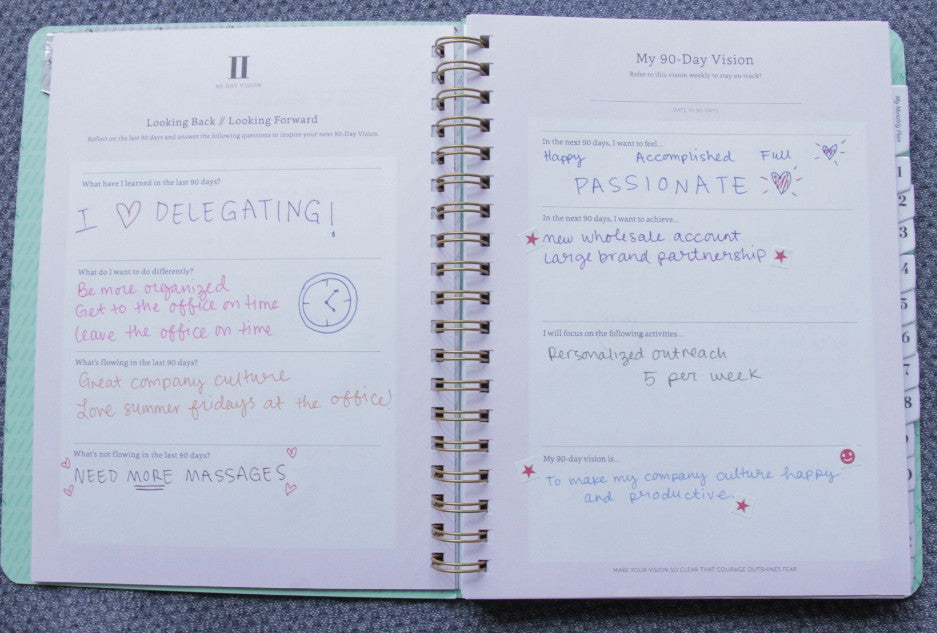 II
90-DAY VISION
Looking Back // Looking Forward
Reflect on the last 90 days and answer the following questions to inspire your next 90-Day Vision.
What have I learned in the last 90 days?
I ♡ DELEGATING!
What do I want to do differently?
Be more organized
Get to the office on time
Leave the office on time
What's flowing in the last 90 days?
Great company culture
Love summer fridays at the office!
What's not flowing in the last 90 days?
NEED MORE MASSAGES
My 90-Day Vision
Refer to this vision weekly to stay on track!
DATE IN 90 DAYS
In the next 90 days, I want to feel...
Happy Accomplished Full
PASSIONATE
In the next 90 days, I want to achieve...
new wholesale account
large brand partnership
I will focus on the following activities...
Personalized outreach
5 per week
My 90-day vision is...
To make my company culture happy
and productive.
MAKE YOUR VISION SO CLEAR THAT COURAGE OUTSHINES FEAR.
My Monthly Plan
1
2
3
4
5
6
7
8